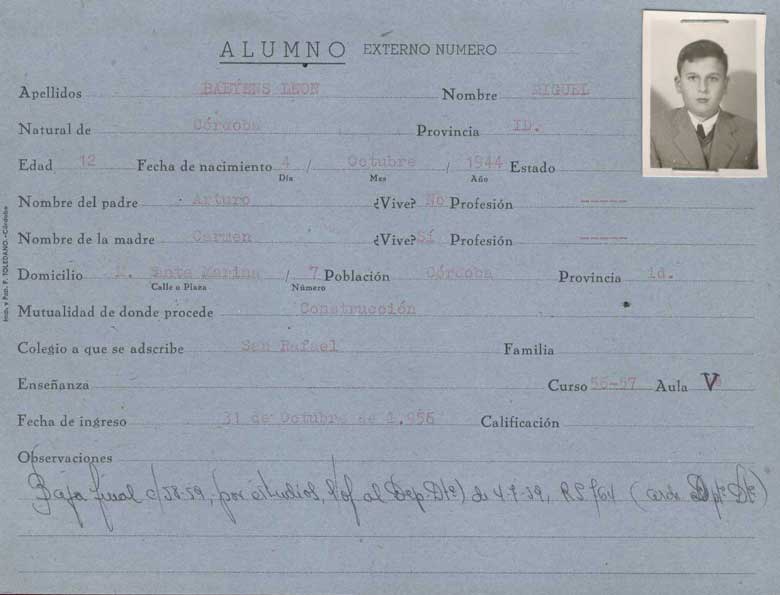 ALUMNO EXTERNO NUMERO
Apellidos BAEYENS LEON Nombre MIGUEL
Natural de Córdoba Provincia ID.
Edad 12 Fecha de nacimiento 4 / Octubre / 1944 Estado
Día Mes Año
Nombre del padre Arturo ¿Vive? No Profesión -----
Nombre de la madre Carmen ¿Vive? Sí Profesión -----
Domicilio Santa Marina / 7 Población Córdoba Provincia id.
Calle o Plaza Número
Mutualidad de donde procede Construcción
Colegio a que se adscribe San Rafael Familia
Enseñanza Curso 56-57 Aula V
Fecha de ingreso 31 de Octubre de 1.956 Calificación
Observaciones
Baja final c/58-59, por estudios, al Dep. de 4-7-59, RS/764
Imp. y Pap. F. TOLEDANO.-Córdoba